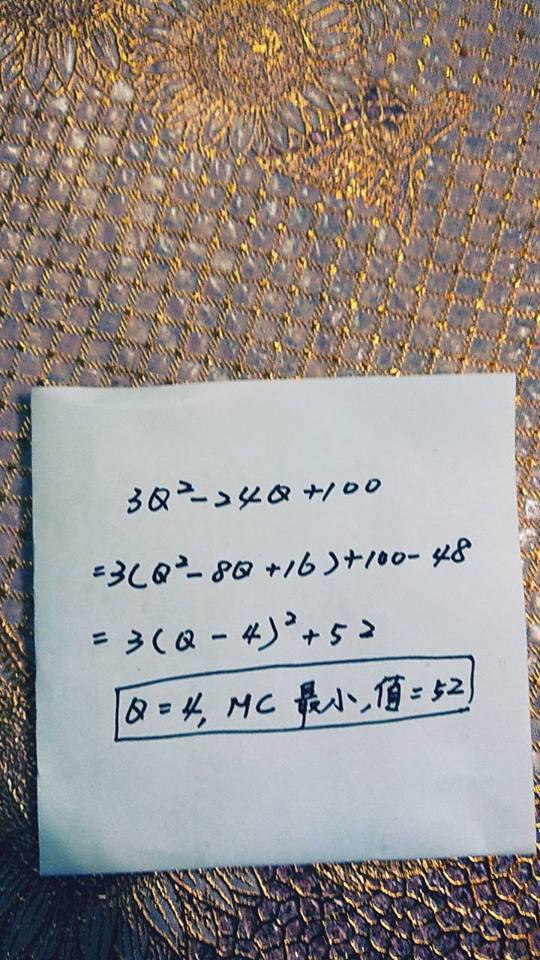 3Q²-24Q+100
=3(Q²-8Q+16)+100-48
=3(Q-4)²+52
Q=4, MC 最小,值=52